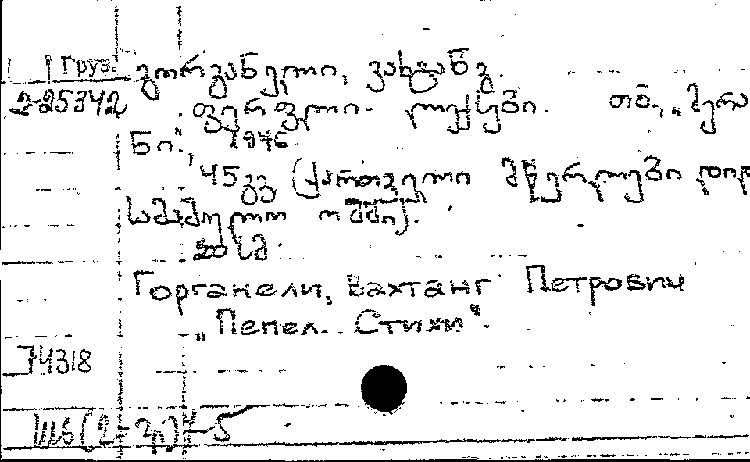 Груз. გორგანელი, ვახტანგ.
2-25342 ფერფლი. ლექსები. თბ., „მერა
ნი“, 1976.
45 გვ. (ქართველი მწერლები დიდ
სამამულო ომში).
20 სმ.
Горганели, Вахтанг Петрович
„Пепел. Стихи“.
74318